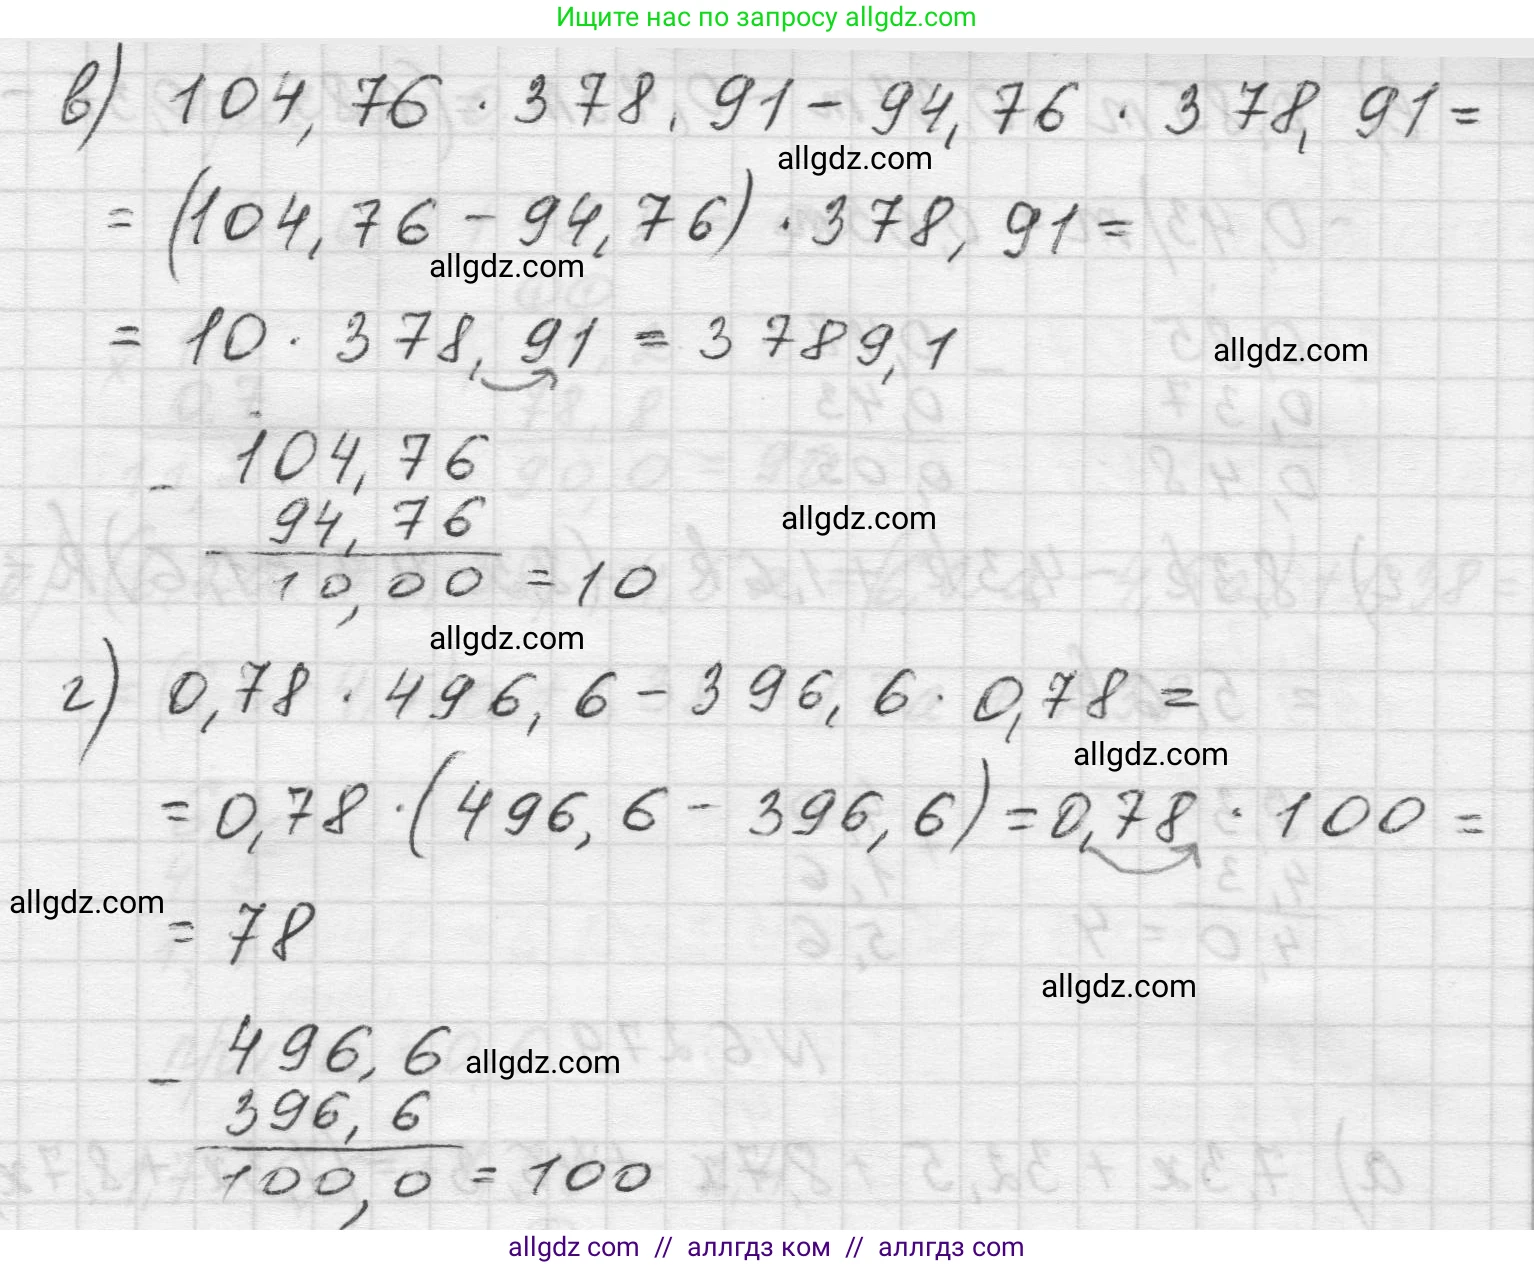 Ищите нас по запросу allgdz.com
в) 104,76 · 378,91 - 94,76 · 378,91 =
allgdz.com
= (104,76 - 94,76) · 378,91 =
allgdz.com
= 10 · 378,91 = 3789,1
allgdz.com
- 104,76
94,76
allgdz.com
10,00 = 10
allgdz.com
г) 0,78 · 496,6 - 396,6 · 0,78 =
allgdz.com
= 0,78 · (496,6 - 396,6) = 0,78 · 100 =
allgdz.com
= 78
allgdz.com
- 496,6
allgdz.com
396,6
100,0 = 100
allgdz com // аллгдз ком // аллгдз com